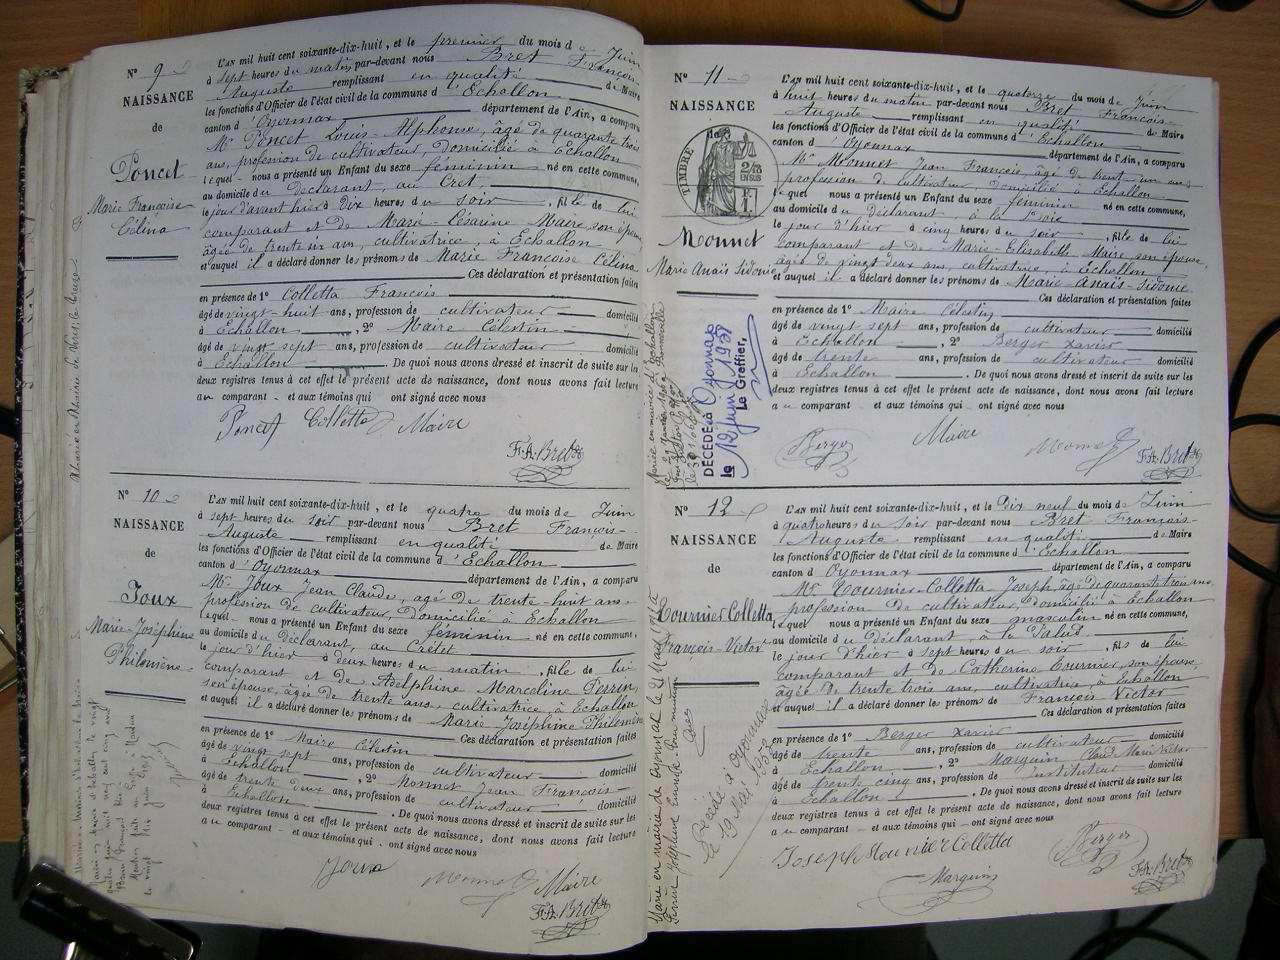 N° 9
NAISSANCE
de
Poncet
Marie Françoise
Célina
L'AN mil huit cent soixante-dix-huit, et le premier du mois de Juin
à sept heures du matin, par-devant nous Bret François-
Auguste remplissant en qualité de Maire
les fonctions d'Officier de l'état civil de la commune d'Echallon
canton d'Oyonnax département de l'Ain, a comparu
Mr Poncet Louis-Alphonse, âgé de quarante trois
ans, profession de cultivateur, domicilié à Echallon
lequel nous a présenté un Enfant du sexe féminin né en cette commune,
au domicile du déclarant, au Cret,
le jour d'avant hier à dix heures du soir, fille de lui
comparant et de Marie Césarine Maire, son épouse
âgée de trente six ans, cultivatrice, à Echallon
et auquel il a déclaré donner les prénoms de Marie Françoise Célina
Ces déclaration et présentation faites
en présence de 1° Colletta François
âgé de vingt-huit ans, profession de cultivateur domicilié
à Echallon, 2° Maire Célestin
âgé de vingt sept ans, profession de cultivateur domicilié
à Echallon. De quoi nous avons dressé et inscrit de suite sur les
deux registres tenus à cet effet le présent acte de naissance, dont nous avons fait lecture
au comparant et aux témoins qui ont signé avec nous
Poncet Colletta Maire
F.A. Bret
N° 10
NAISSANCE
de
Joux
Marie-Joséphine
Philomène
L'AN mil huit cent soixante-dix-huit, et le quatre du mois de Juin
à sept heures du soir par-devant nous Bret François-
Auguste remplissant en qualité de Maire
les fonctions d'Officier de l'état civil de la commune d'Echallon
canton d'Oyonnax département de l'Ain, a comparu
Mr Joux Jean Claude, âgé de trente huit ans,
profession de cultivateur, domicilié à Echallon
lequel nous a présenté un Enfant du sexe féminin né en cette commune,
au domicile du déclarant, au Crétet
le jour d'hier à deux heures du matin, fille de lui
comparant et de Adelphine Marceline Perrin,
son épouse, âgée de trente ans, cultivatrice à Echallon
et auquel il a déclaré donner les prénoms de Marie Joséphine Philomène
Ces déclaration et présentation faites
en présence de 1° Maire Célestin
âgé de vingt sept ans, profession de cultivateur domicilié
à Echallon, 2° Monnet Jean François
âgé de trente deux ans, profession de cultivateur domicilié
à Echallon. De quoi nous avons dressé et inscrit de suite sur les
deux registres tenus à cet effet le présent acte de naissance, dont nous avons fait lecture
au comparant et aux témoins qui ont signé avec nous
Joux Monnet Maire
F.A. Bret
N° 11
NAISSANCE
TIMBRE
2/10
EN SUS
Monnet
Marie Anaïs Sidonie
DÉCÉDÉ à Oyonnax
le 12 juin 19
Le Greffier,
L'AN mil huit cent soixante-dix-huit, et le quatorze du mois de Juin
à huit heures du matin par-devant nous Bret François-
Auguste remplissant en qualité de Maire
les fonctions d'Officier de l'état civil de la commune d'Echallon
canton d'Oyonnax département de l'Ain, a comparu
Mr Monnet Jean François, âgé de trente un ans
profession de cultivateur domicilié à Echallon
lequel nous a présenté un Enfant du sexe féminin né en cette commune,
au domicile du déclarant, à la
le jour d'hier à cinq heures du soir, fille de lui
comparant et de Marie-Elisabeth Maire, son épouse
âgée de vingt deux ans, cultivatrice, à Echallon
et auquel il a déclaré donner les prénoms de Marie Anaïs-Sidonie
Ces déclaration et présentation faites
en présence de 1° Maire Célestin
âgé de vingt sept ans, profession de cultivateur domicilié
à Echallon, 2° Berger Xavier
âgé de trente ans, profession de cultivateur domicilié
à Echallon. De quoi nous avons dressé et inscrit de suite sur les
deux registres tenus à cet effet le présent acte de naissance, dont nous avons fait lecture
au comparant et aux témoins qui ont signé avec nous
Berger Maire Monnet
F.A. Bret
N° 12
NAISSANCE
de
Tournier Colletta
François-Victor
Décédé à Oyonnax
L'AN mil huit cent soixante-dix-huit, et le Dix neuf du mois de Juin
à quatre heures du soir par-devant nous Bret François-
Auguste remplissant en qualité de Maire
les fonctions d'Officier de l'état civil de la commune d'Echallon
canton d'Oyonnax département de l'Ain, a comparu
Mr Tournier-Colletta Joseph, âgé de quarante trois ans,
profession de cultivateur, domicilié à Echallon
lequel nous a présenté un Enfant du sexe masculin né en cette commune,
au domicile du déclarant, à
le jour d'hier à sept heures du soir, fils de lui
comparant et de Catherine Tournier, son épouse,
âgée de trente trois ans, cultivatrice, à Echallon
et auquel il a déclaré donner les prénoms de François Victor
Ces déclaration et présentation faites
en présence de 1° Berger Xavier
âgé de trente ans, profession de cultivateur domicilié
à Echallon, 2° Marguin Marie Victor
âgé de trente cinq ans, profession de instituteur domicilié
à Echallon. De quoi nous avons dressé et inscrit de suite sur les
deux registres tenus à cet effet le présent acte de naissance, dont nous avons fait lecture
au comparant et aux témoins qui ont signé avec nous
Joseph Tournier Colletta Berger
Marguin F.A. Bret